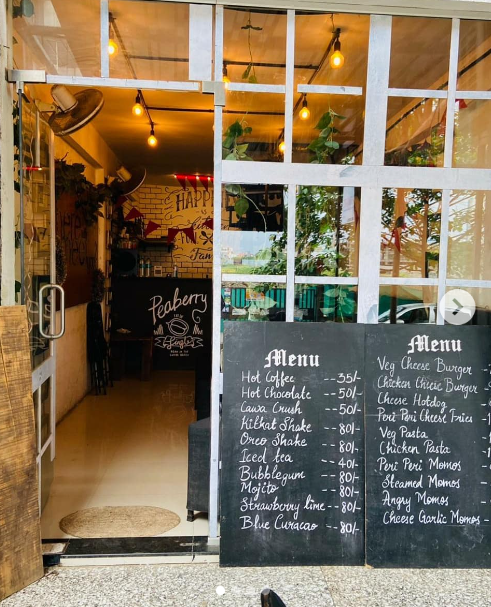 HAPPY
Peaberry
Menu
Hot Coffee --35/-
Hot Chocolate --50/-
Cawa Crush --50/-
Kitkat Shake --80/-
Oreo Shake --80/-
Iced tea --40/-
Bubblegum --80/-
Mojito --80/-
Strawberry lime --80/-
Blue Curacao --80/-
Menu
Veg Cheese Burger
Chicken Chick Burger
Cheese Hotdog
Peri Peri Cheese Fries
Veg Pasta
Chicken Pasta
Peri Peri Momos
Steamed Momos
Angry Momos
Cheese Garlic Momos